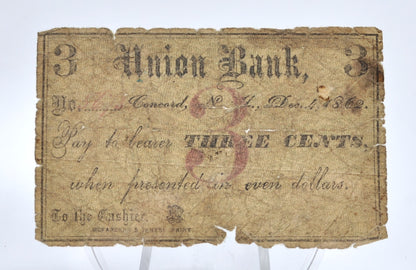 3 Union Bank, 3
No. Concord, N. H., Dec. 4, 1862.
Pay to bearer THREE CENTS,
3
when presented in even dollars.
To the Cashier.
McFARLAND & JENKS, PRINT.